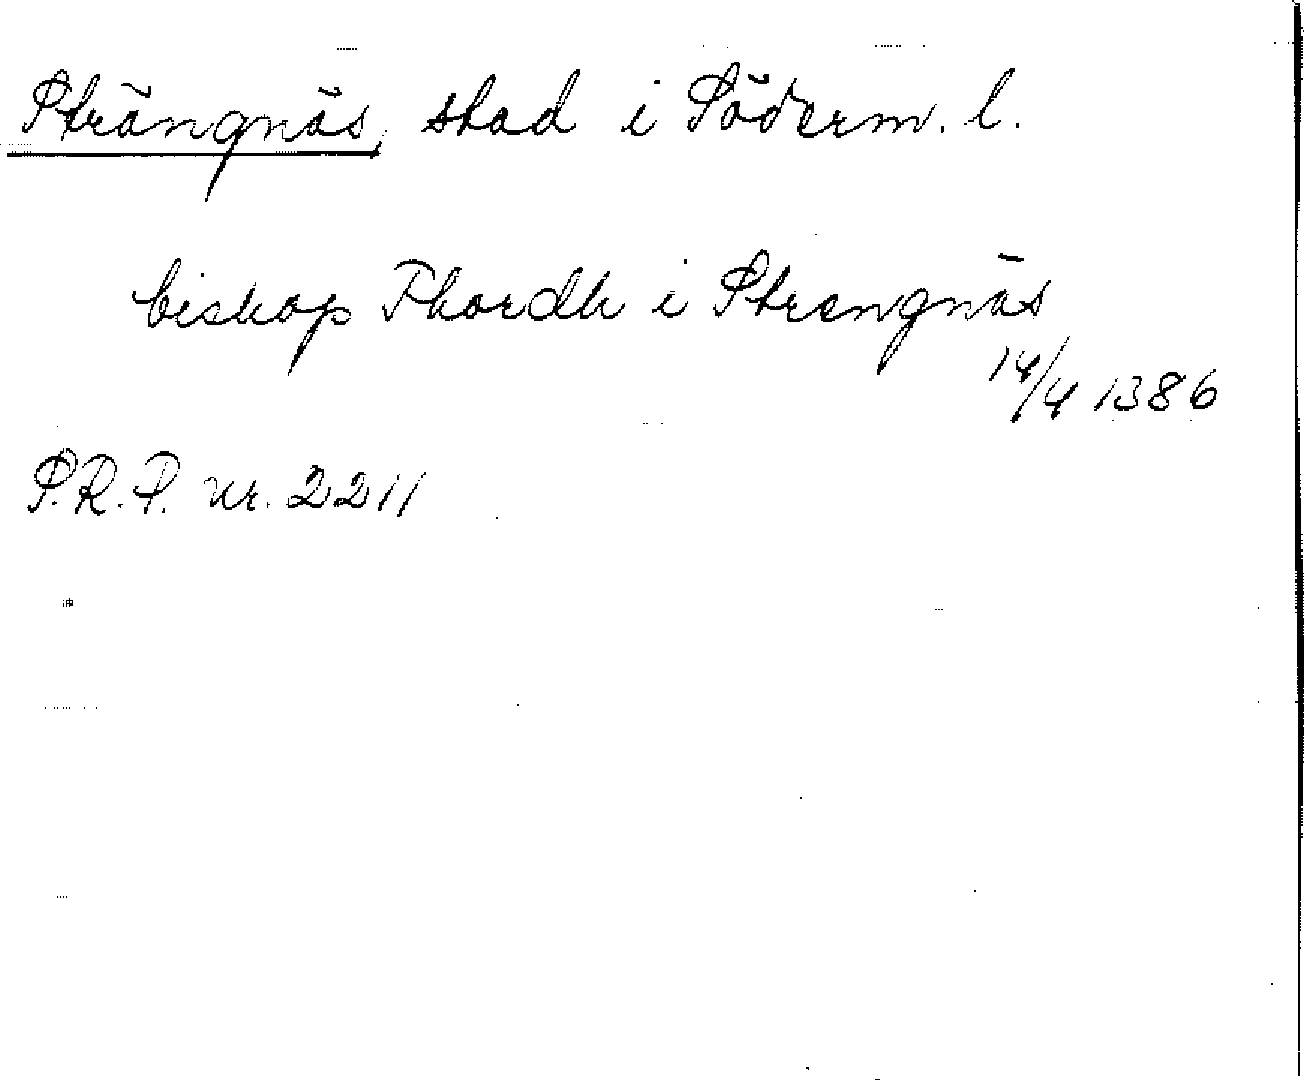 Strängnäs, stad i Söderm. l.
biskop Thordh i Strengnäs
14/4 1386
S.R.P. nr. 2211